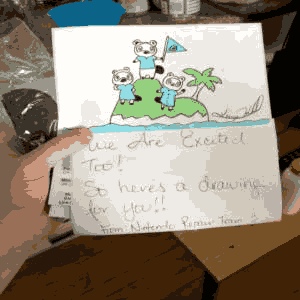 We Are Excited
Too!
So heres a drawing
for you!!
from Nintendo Repair Team